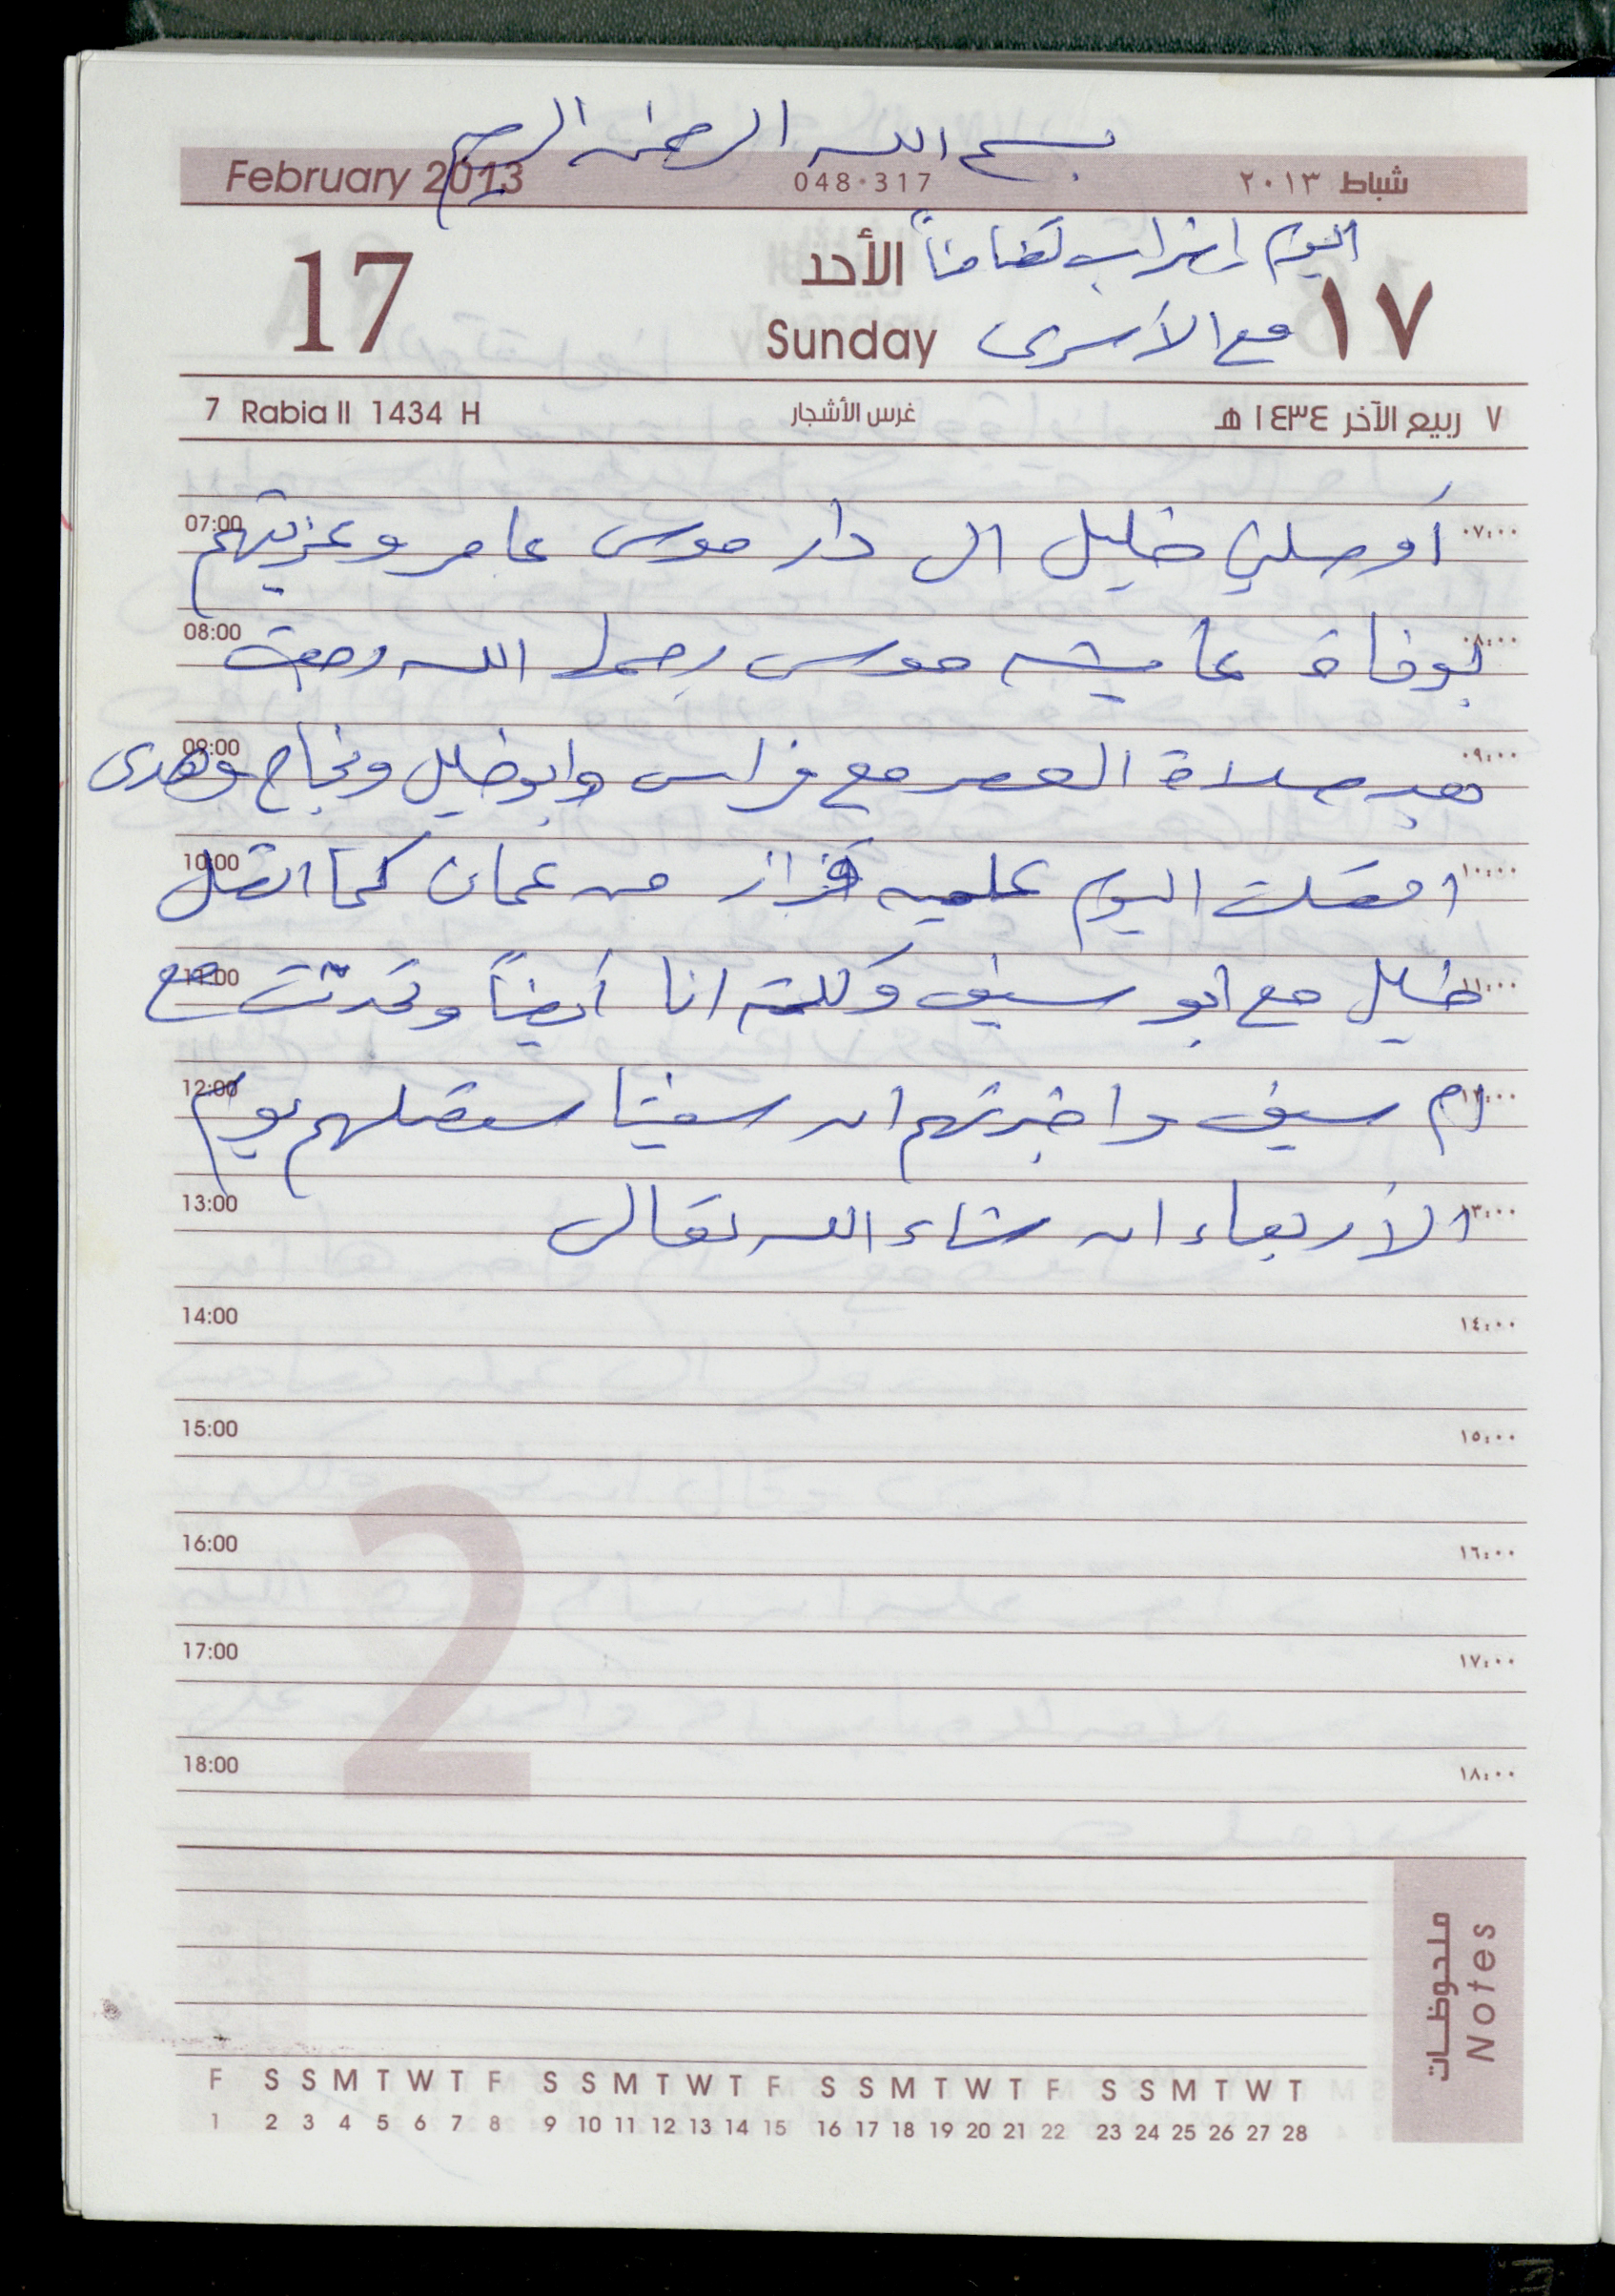 بسم الله الرحمن الرحيم
February 2013 048-317 شباط ٢٠١٣
اليوم إضراب تضامناً
17 الأحد ١٧
Sunday مع الأسرى
7 Rabia II 1434 H غرس الأشجار ٧ ربيع الآخر ١٤٣٤ هـ
07:00 أوصلني خليل الى دار موسى عامر وعزيتهم ٠٧:٠٠
08:00 بوفاة عايشه موسى رحمها الله رجعت ٠٨:٠٠
09:00 بعد صلاة العصر مع فراس وابو خليل ونجاح وهدى ٠٩:٠٠
10:00 اتصلت اليوم عليه فزاز من عمان كما اتصل ١٠:٠٠
11:00 خليل مع ابو سيف وكلمته انا أيضاً وتحدثت مع ١١:٠٠
12:00 ام سيف واخبرتهم ان سفيتا ستصلهم يوم ١٢:٠٠
13:00 الأربعاء ان شاء الله تعالى ١٣:٠٠
14:00 ١٤:٠٠
15:00 ١٥:٠٠
16:00 ١٦:٠٠
17:00 ١٧:٠٠
18:00 ١٨:٠٠
2
ملحوظات
Notes
F S S M T W T F S S M T W T F S S M T W T F S S M T W T
1 2 3 4 5 6 7 8 9 10 11 12 13 14 15 16 17 18 19 20 21 22 23 24 25 26 27 28